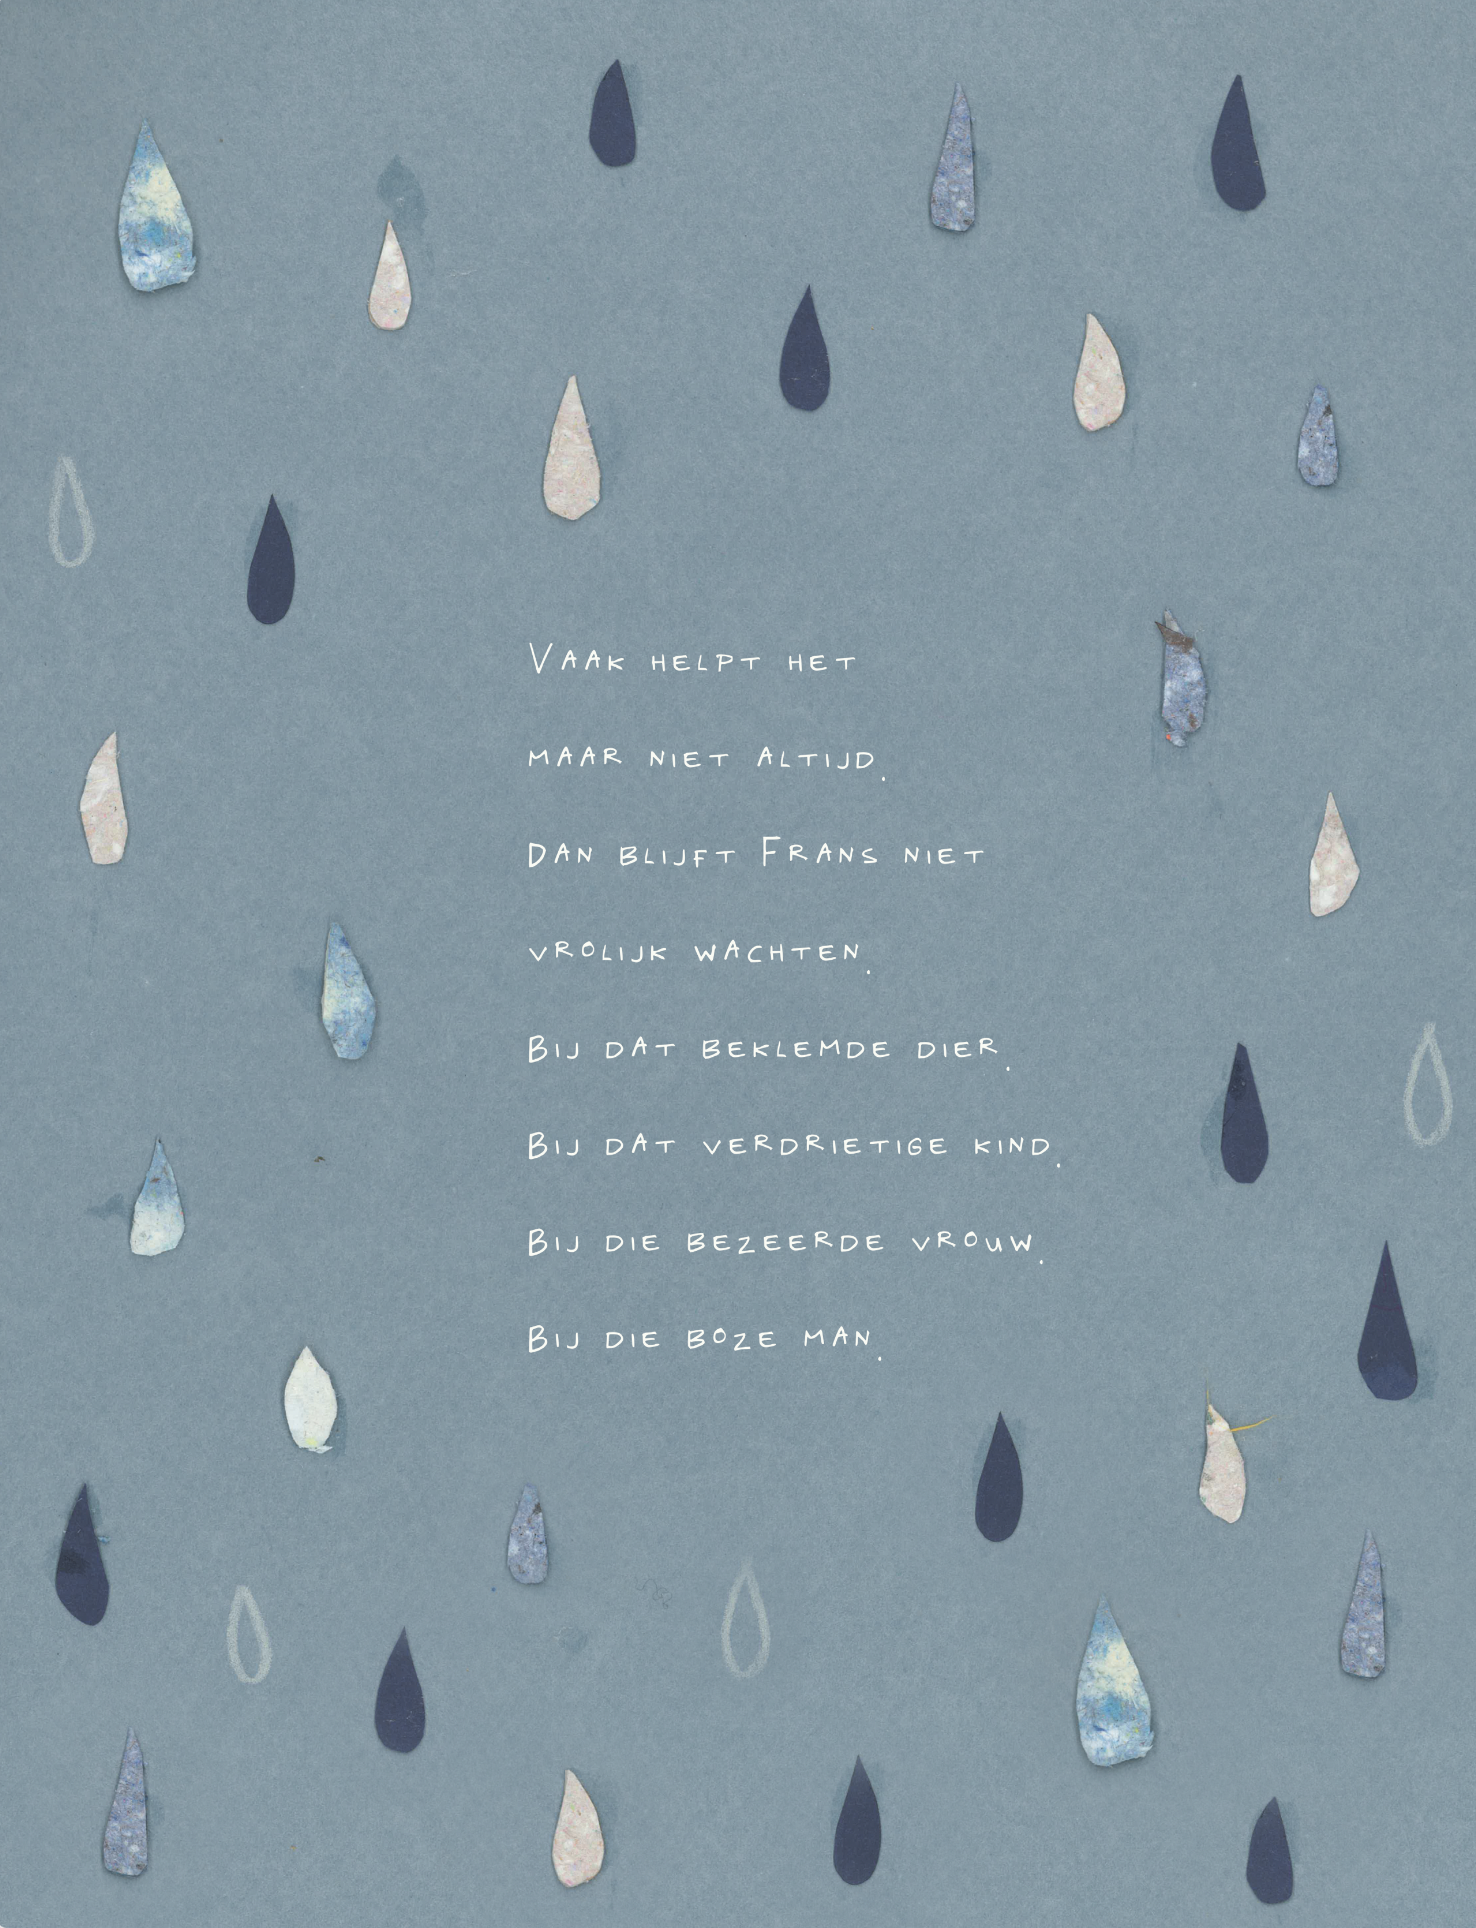 Vaak helpt het
maar niet altijd.
Dan blijft Frans niet
vrolijk wachten.
Bij dat beklemde dier.
Bij dat verdrietige kind.
Bij die bezeerde vrouw.
Bij die boze man.